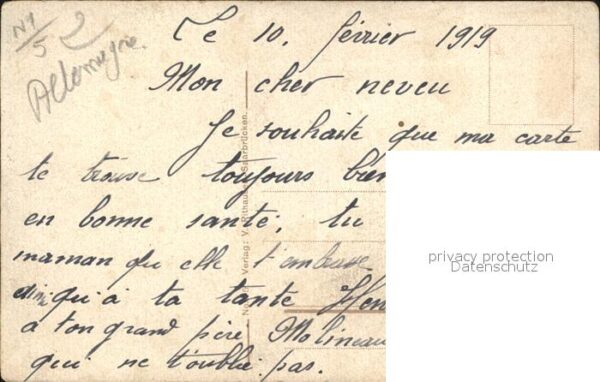 N1/5 2
Allemagne.
Le 10. février 1919
Mon cher neveu
Je souhaite que ma carte
te trouve toujours bien
en bonne santé, tu
maman qu elle t'embrasse
qu'à ta tante Hen
a ton grand père, Molineau
qui ne t'oublie pas.
Verlag: V. Rithausen Saarbrücken.
privacy protection
Datenschutz